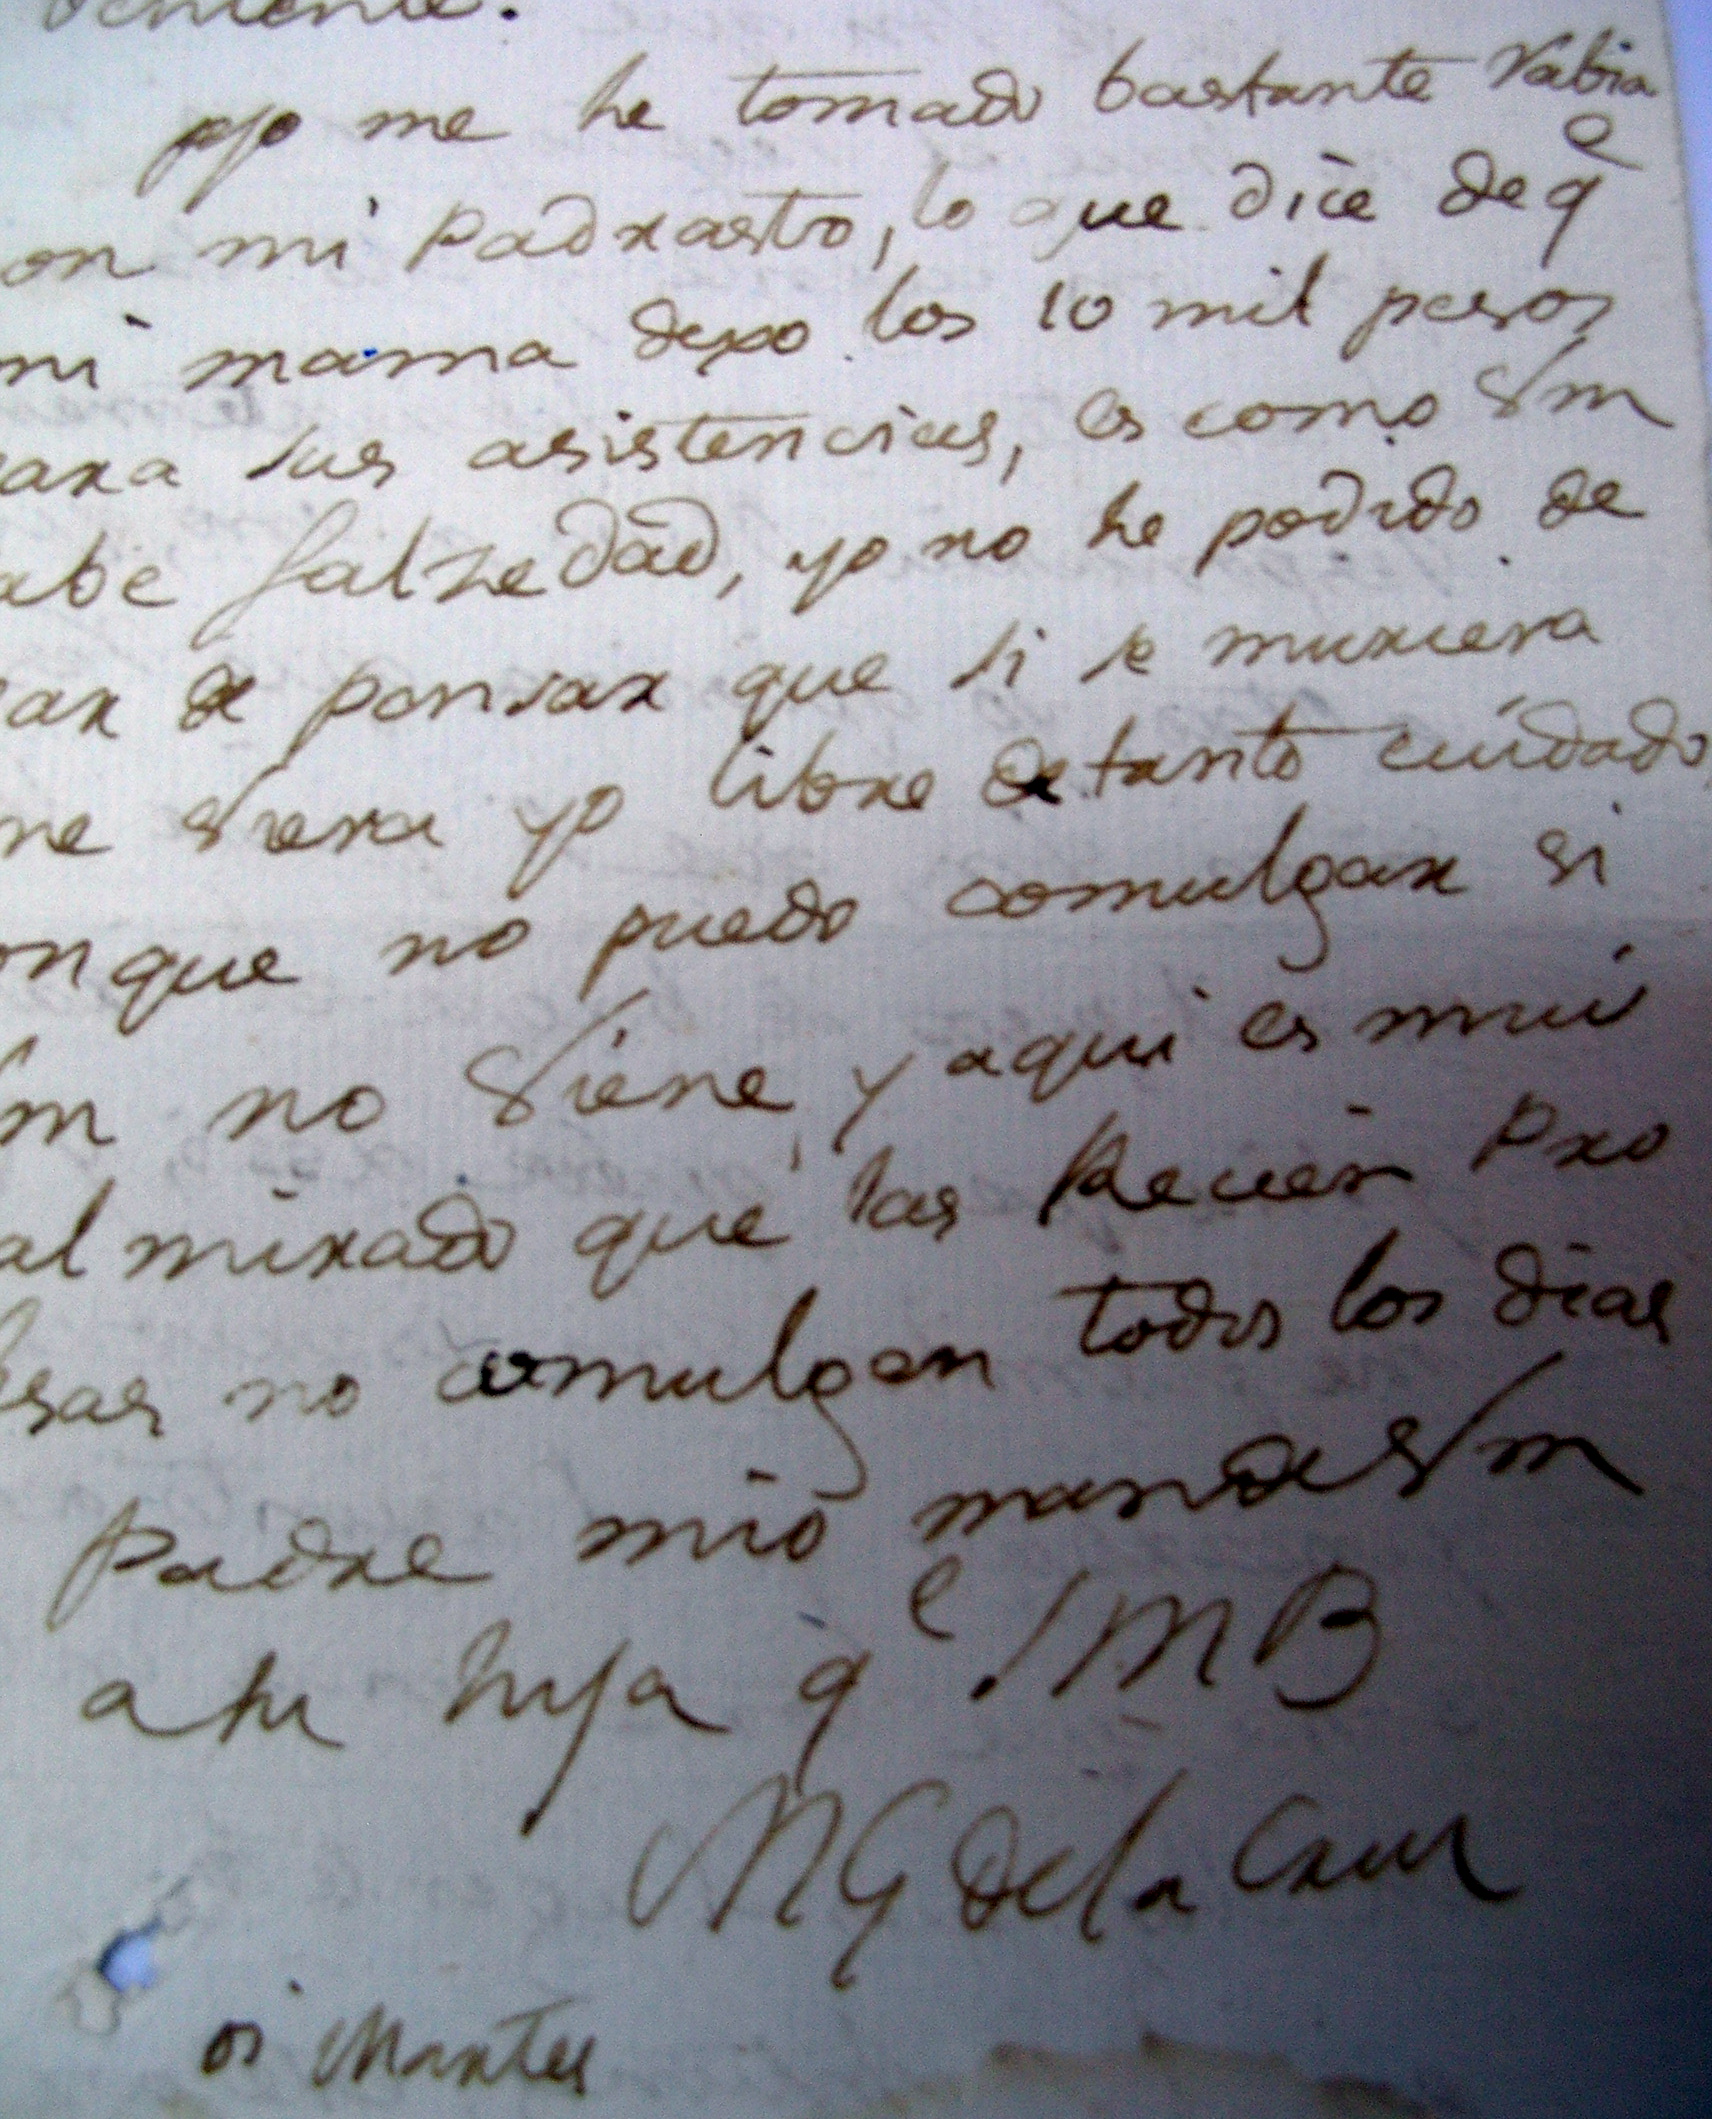 yo me he tomado bastante rabia
on mi padrasto, lo que dice de qe
mi mama dexo los 10 mil pesos
ara sus asistencias, es como Vm
abe falzedad, yo no he podido de
ar de pensar que si se muriera
me viera yo libre de tanto cuidado
onque no puedo comulgar si
Vm no viene, y aqui es mui
al mirado que las Recien Pro
esas no comulgen todos los dias
Padre mio mande Vm
a su hija qe S M B
MG de la Cruz
oi Martes